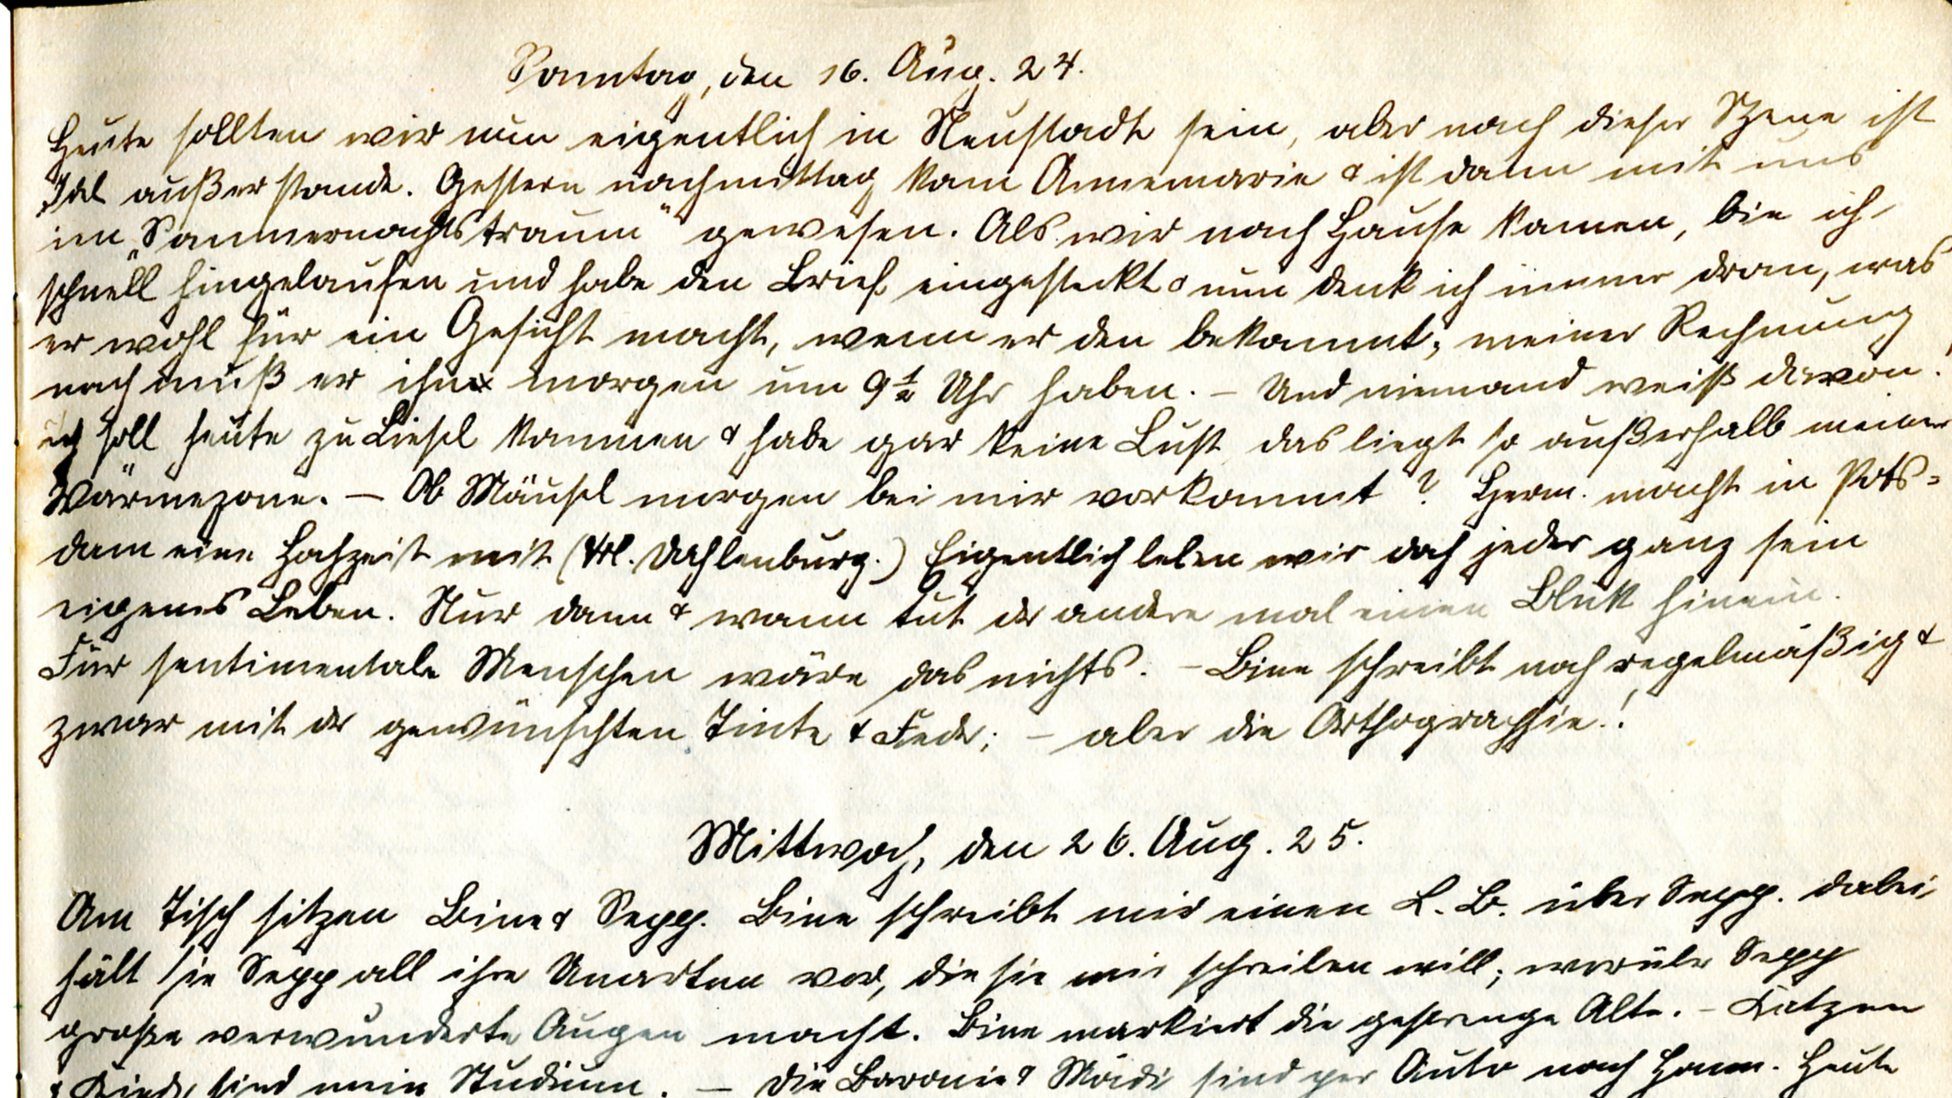 Sonntag, den 16. Aug. 24.
Heute sollten wir nun eigentlich in Neustadt sein, aber nach dieser Szene ist
Idel außerstande. Gestern nachmittag kam Annemarie & ist dann mit uns
im „Sommernachtstraum" gewesen. Als wir nach Hause kamen, bin ich
schnell hingelaufen und habe den Brief eingesteckt & nun denk ich immer dran, was
er wohl für ein Gesicht macht, wenn er den bekommt; meiner Rechnung
nach muß er ihn morgen um 9½ Uhr haben. – Und niemand weiß davon!
ich soll heute zu Liesel kommen & habe gar keine Lust das liegt so außerhalb meiner
Wärmezone. – Ob Mäusel morgen bei mir vorkommt? Herm. macht in Pots=
dam eine Hochzeit mit (Frl. Dahlenburg.) Eigentlich leben wir doch jeder ganz sein
eigenes Leben. Nur dann & wann tut der andere mal einen Blick hinein.
Für sentimentale Menschen wäre das nichts. – Bine schreibt noch regelmäßig &
zwar mit der gewünschten Tinte & Feder; – aber die Orthographie!
Mittwoch, den 26. Aug. 25.
Am Tisch sitzen Bine & Sepp. Bine schreibt mir einen L. B. über Sepp. dabei
hält sie Sepp all ihre Unarten vor, die sie mir schreiben will; worüber Sepp
große verwunderte Augen macht. Bine markiert die gestrenge Alte. – Katzen
& Kinder sind mein Studium. – Die Baronin & Mädi sind per Auto nach Hann. Heute